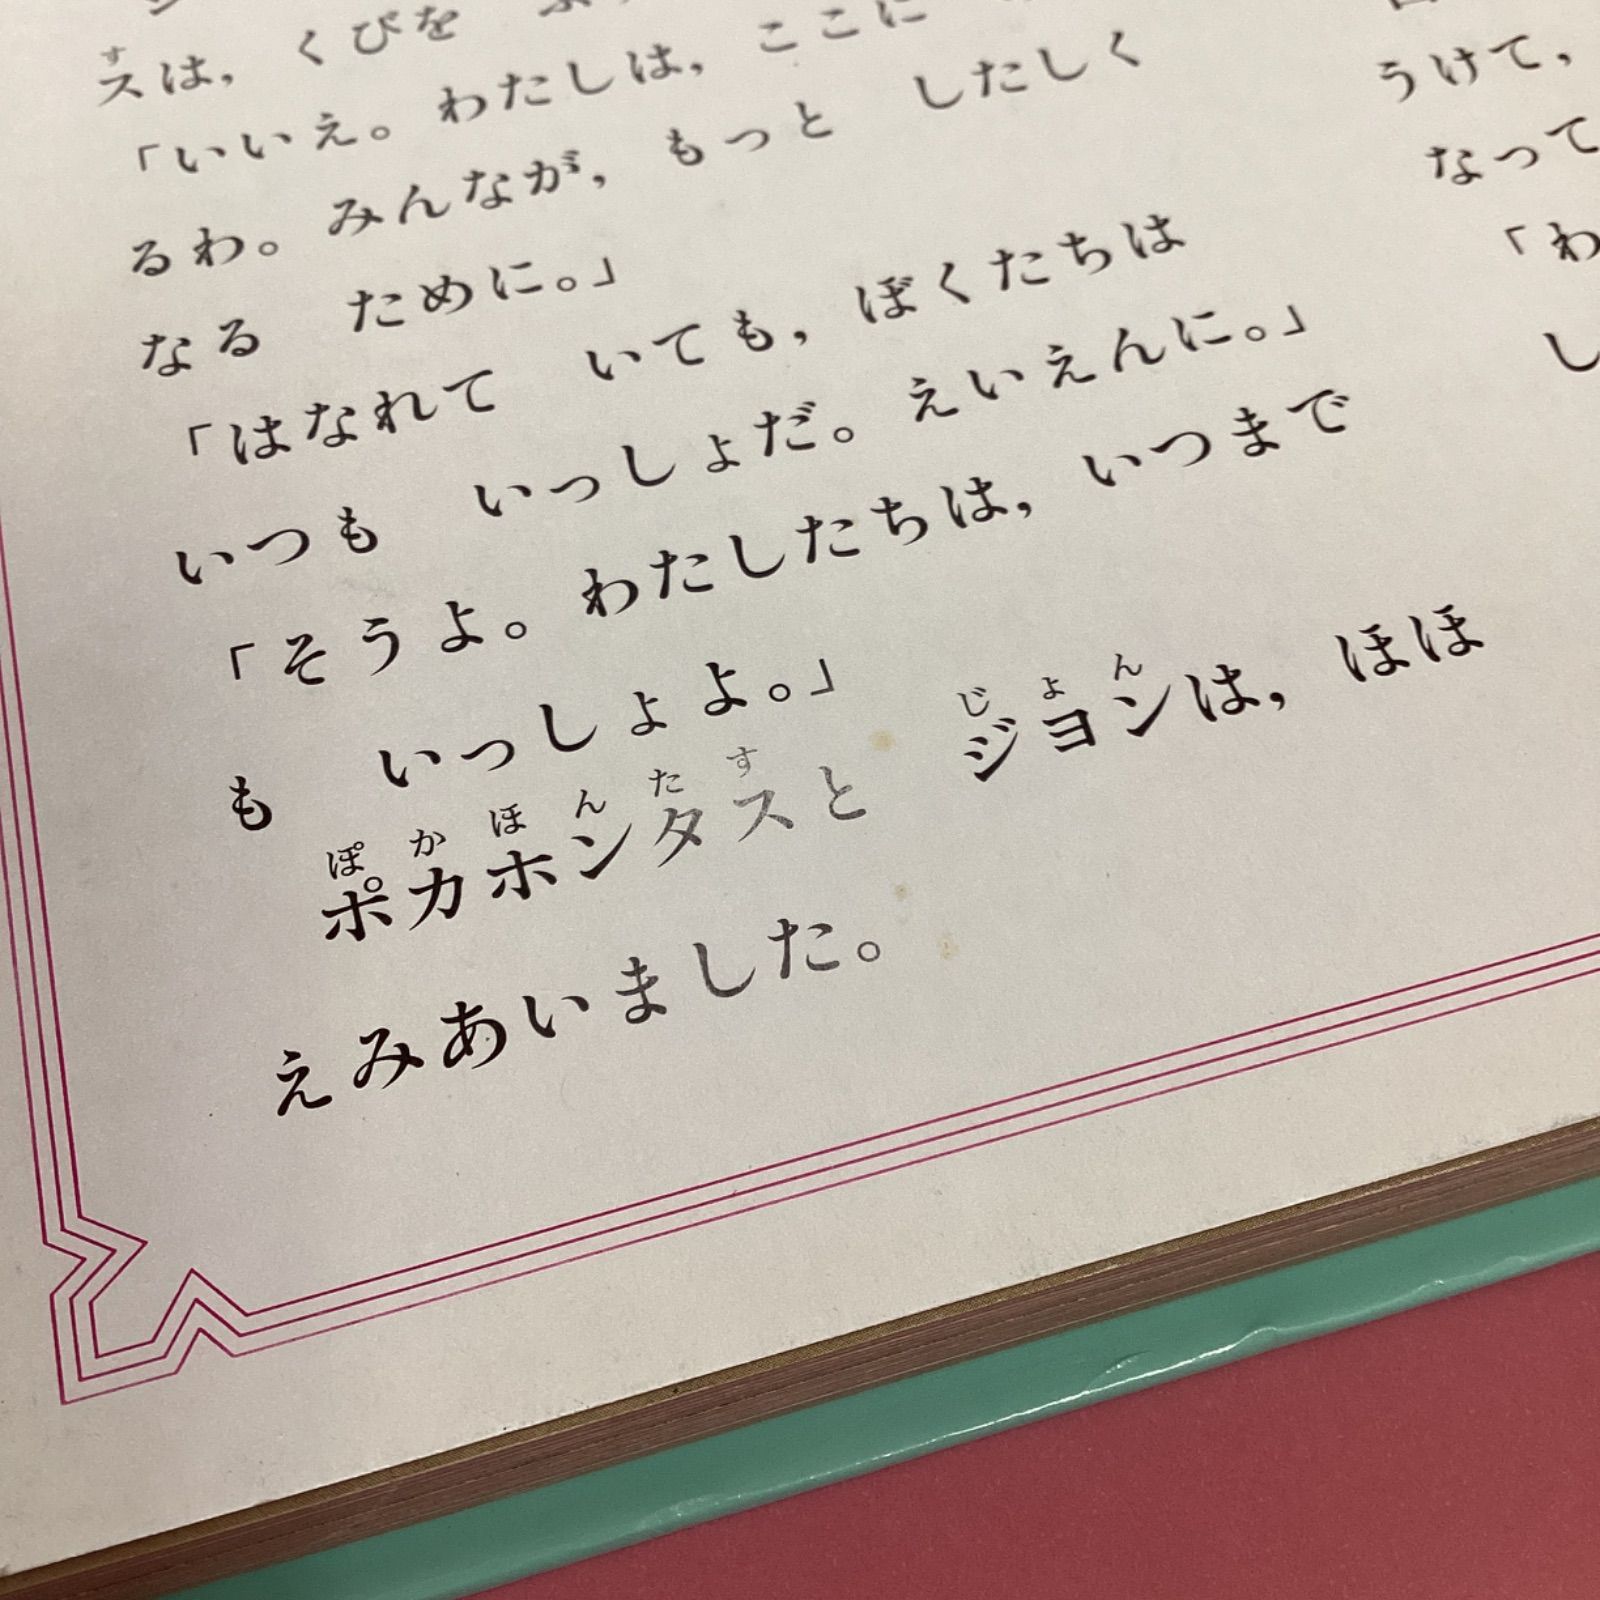 スは，くびを
「いいえ。わたしは，ここに
るわ。みんなが，もっと　したしく
なる　ために。」
「はなれて　いても，ぼくたちは
いつも　いっしょだ。えいえんに。」
「そうよ。わたしたちは，いつまで
も　いっしょよ。」
ポカホンタスと　ジョンは，ほほ
えみあいました。
うけて，
なって
「わ
し